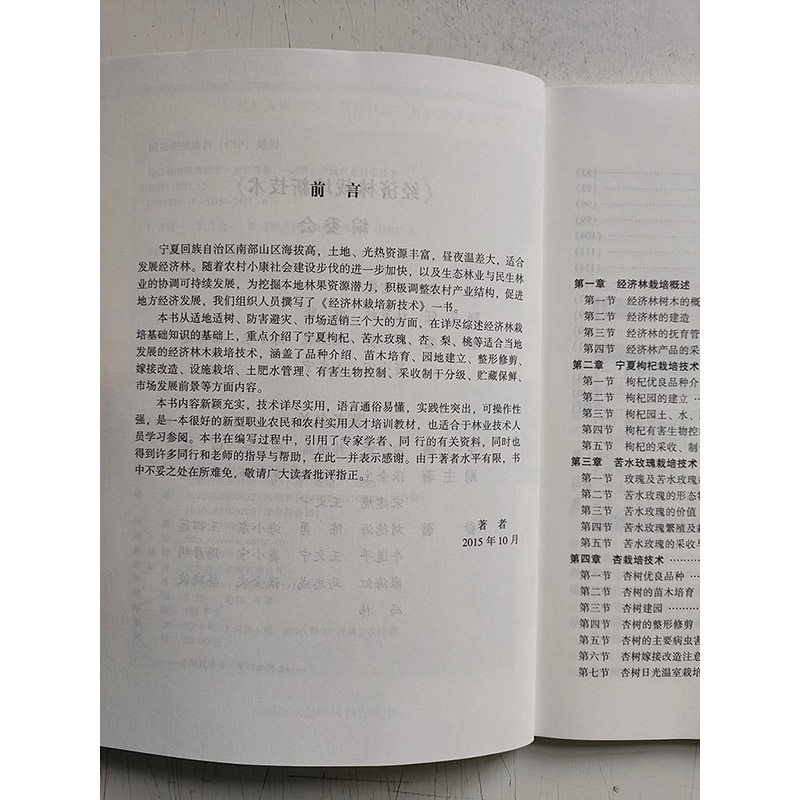 前 言
宁夏回族自治区南部山区海拔高，土地、光热资源丰富，昼夜温差大，适合
发展经济林。随着农村小康社会建设步伐的进一步加快，以及生态林业与民生林
业的协调可持续发展，为挖掘本地林果资源潜力，积极调整农村产业结构，促进
地方经济发展，我们组织人员撰写了《经济林栽培新技术》一书。
本书从适地适树、防害避灾、市场适销三个大的方面，在详尽综述经济林栽
培基础知识的基础上，重点介绍了宁夏枸杞、苦水玫瑰、杏、梨、桃等适合当地
发展的经济林木栽培技术，涵盖了品种介绍、苗木培育、园地建立、整形修剪、
嫁接改造、设施栽培、土肥水管理、有害生物控制、采收制干分级、贮藏保鲜、
市场发展前景等方面内容。
本书内容新颖充实，技术详尽实用，语言通俗易懂，实践性突出，可操作性
强，是一本很好的新型职业农民和农村实用人才培训教材，也适合于林业技术人
员学习参阅。本书在编写过程中，引用了专家学者、同行的有关资料，同时也
得到许多同行和老师的指导与帮助，在此一并表示感谢。由于著者水平有限，书
中不妥之处在所难免，敬请广大读者批评指正。
著 者
2015 年 10 月
第一章 经济林栽培概述
第一节 经济林树木的概
第二节 经济林的建造
第三节 经济林的抚育管
第四节 经济林产品的采
第二章 宁夏枸杞栽培技术
第一节 枸杞优良品种介
第二节 枸杞园的建立
第三节 枸杞园土、水、
第四节 枸杞有害生物控
第五节 枸杞的采收、制
第三章 苦水玫瑰栽培技术
第一节 玫瑰及苦水玫瑰
第二节 苦水玫瑰的形态
第三节 苦水玫瑰的价值
第四节 苦水玫瑰繁殖及
第五节 苦水玫瑰的采收与
第四章 杏栽培技术
第一节 杏树优良品种
第二节 杏树的苗木培育
第三节 杏树建园
第四节 杏树的整形修剪
第五节 杏树的主要病虫害
第六节 杏树嫁接改造注意
第七节 杏树日光温室栽培